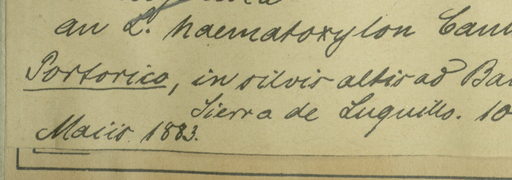 an L. haematoxylon Cam
Portorico, in silvis altis ad Ba
Sierra de Luquillo. 10
Maiis 1883.